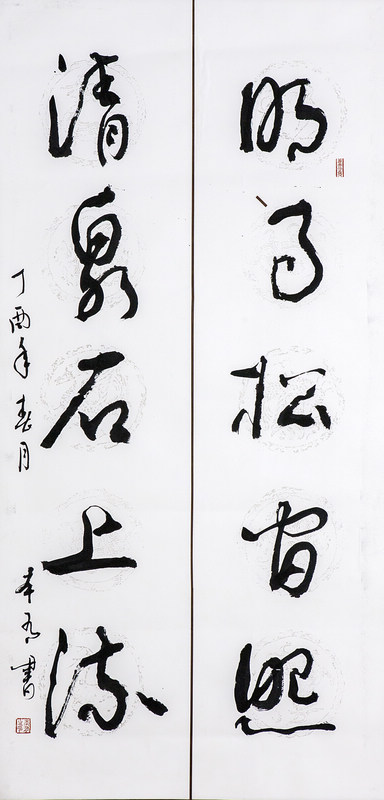 明月松間照
清泉石上流
丁酉年春月
書